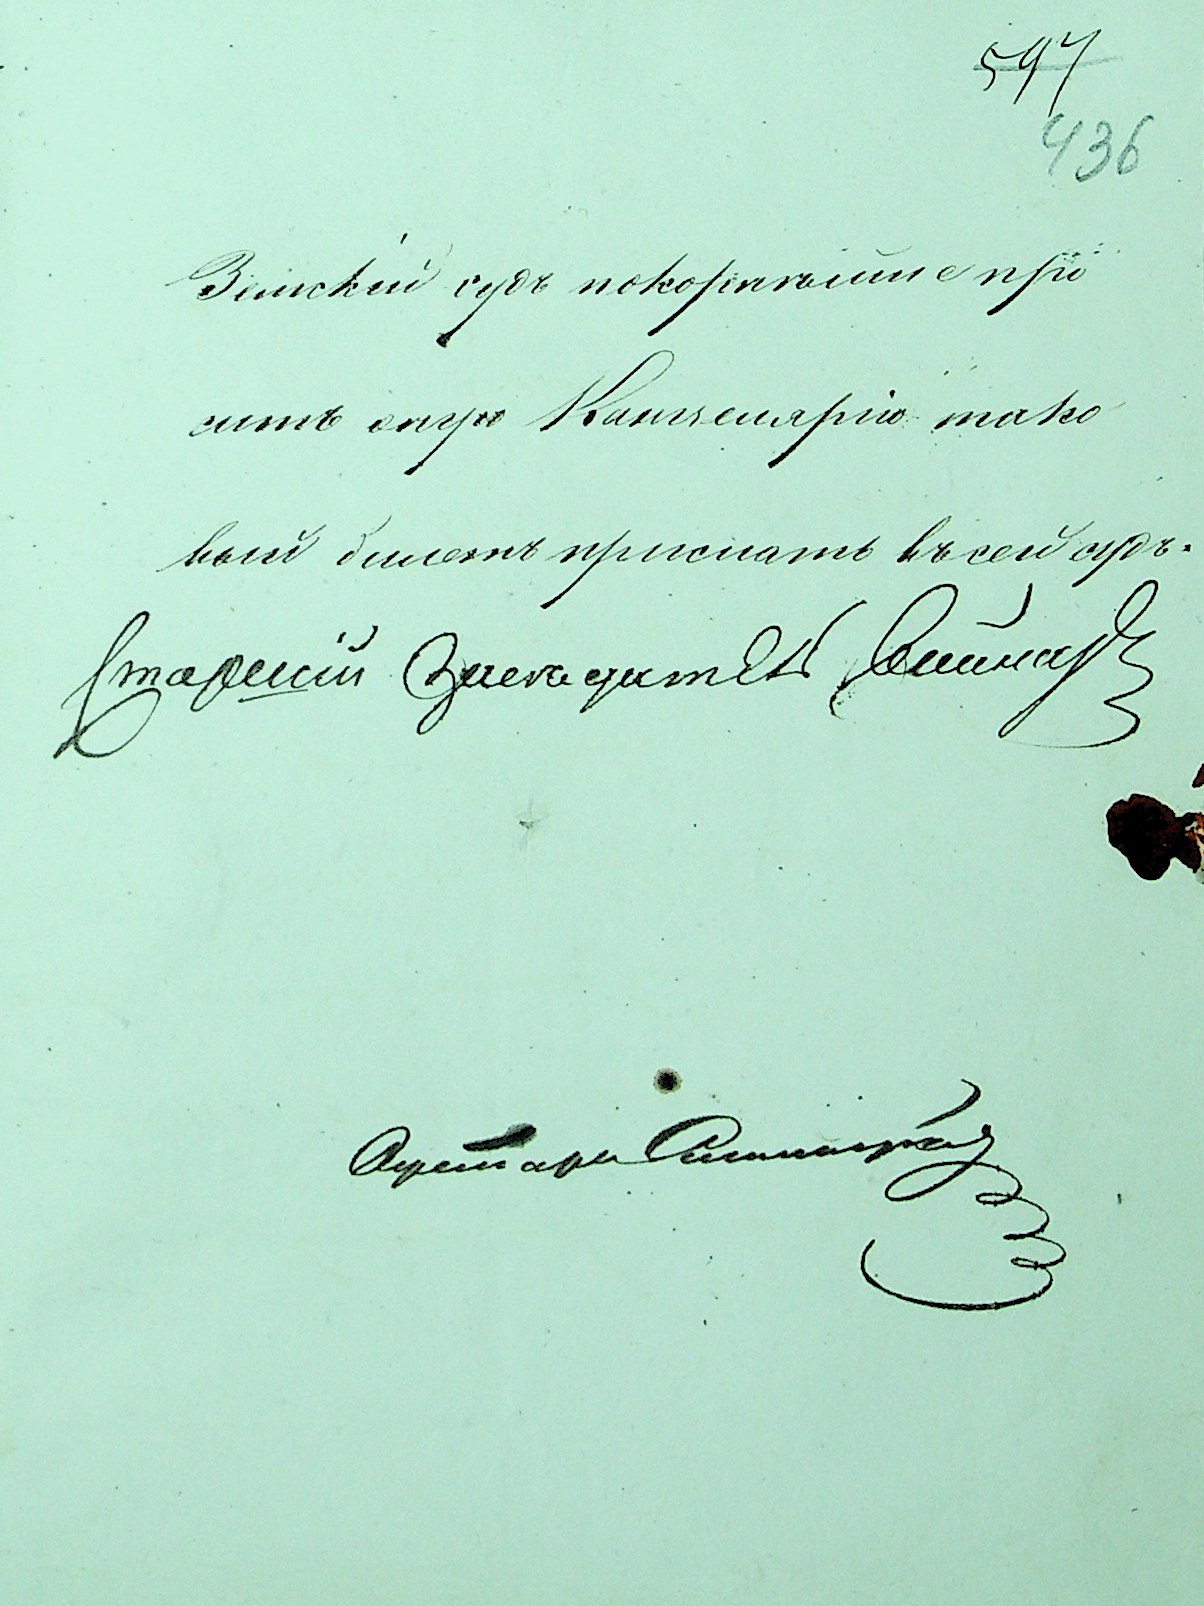 597
436
Земскій судъ покорнѣйше про
ситъ оную Канцелярію тако
вый билетъ прислать въ сей судъ.
Старшій Засѣдатель
Секретарь